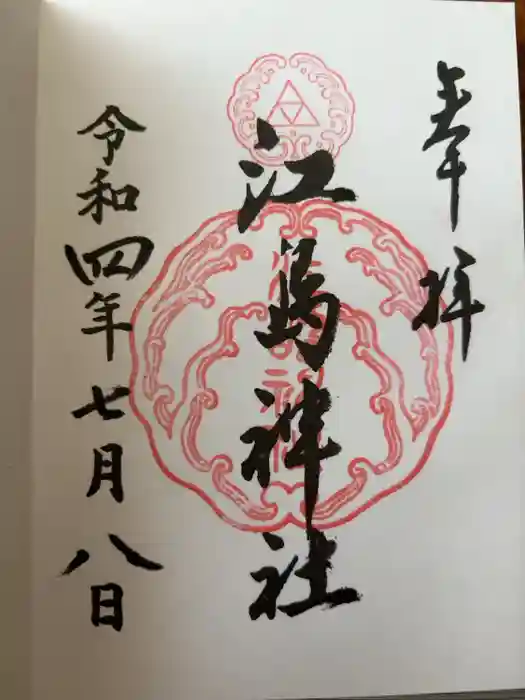 奉拝
江島神社
令和四年七月八日